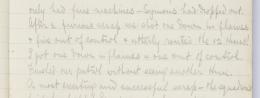 only had five machines - Symons had dropped out.
After a furious scrap we shot one down in flames
& five out of control & utterly routed the 12 Huns!
I got one down in flames & one out of control.
Finished our patrol without seeing another Hun.
A most exciting and successful scrap - the squadron